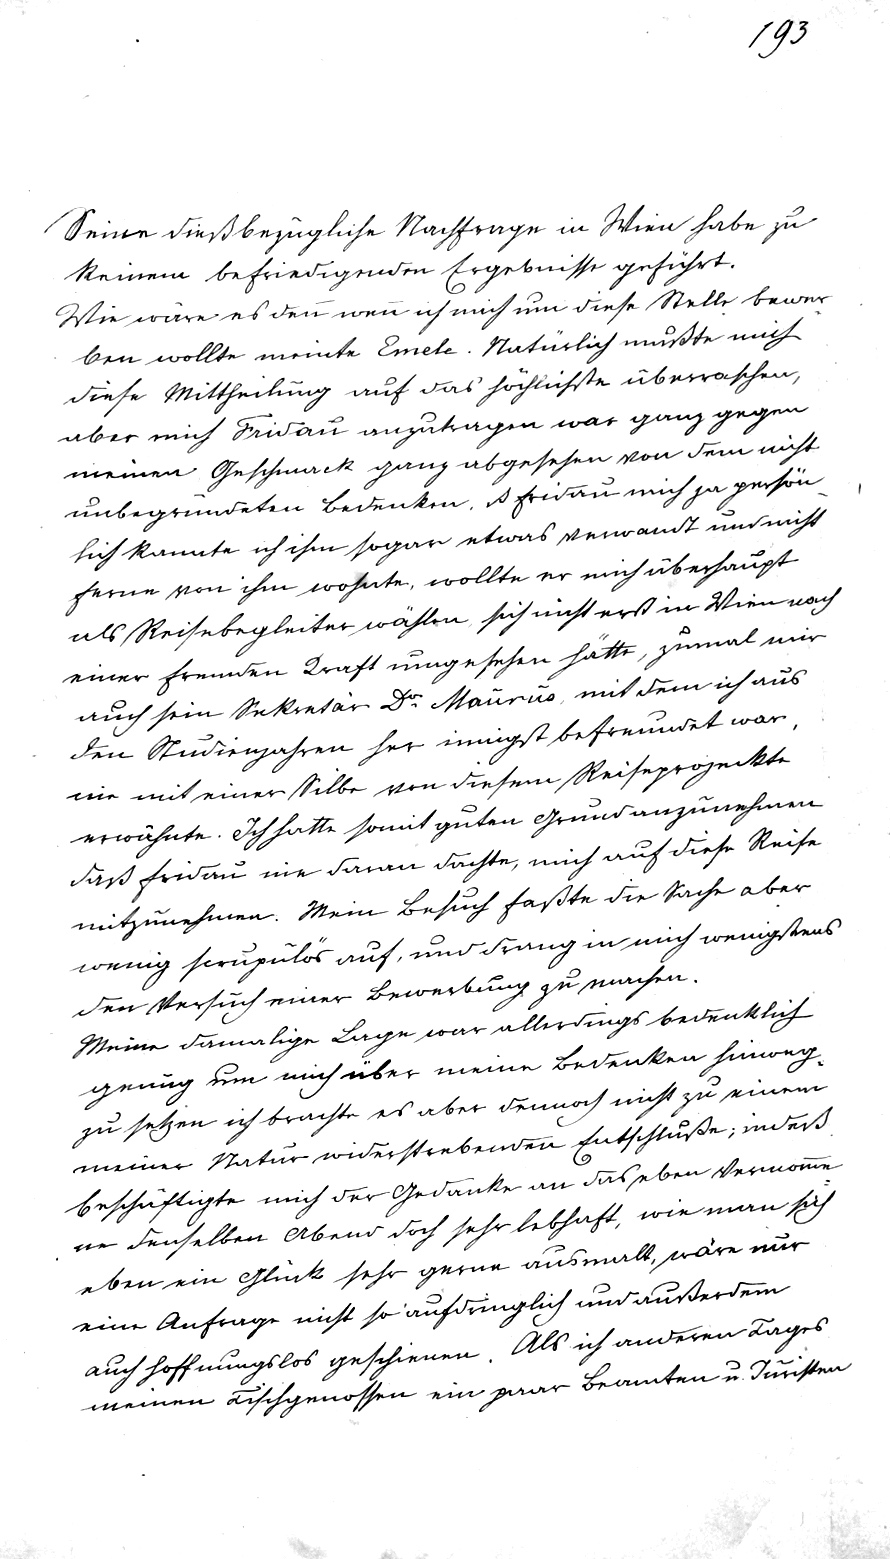 193
Seine dießbezügliche Nachfrage in Wien habe zu
keinem befriedigenden Ergebnisse geführt.
Wie wäre es deñ weñ ich mich um diese Stelle bewer
ben wollte meinte Emele. Natürlich mußte mich
diese Mittheilung auf das höchlichste überraschen,
aber mich Fridau anzutragen war ganz gegen
meinen Geschmack ganz abgesehen von dem nicht
unbegründeten Bedenken, ß Fridau mich ja persön
lich kannte ich ihm sogar etwas verwandt und nicht
ferne von ihm wohnte, wollte er mich überhaupt
als Reisebegleiter wählen, sich nicht erst in Wien nach
einer fremden Kraft umgesehen hätte, zumal mir
auch sein Sekretär Dr Maurus, mit dem ich aus
den Studienjahren her innigst befreundet war,
nie mit einer Silbe von diesem Reiseprojeckte
erwähnte. Ich hatte somit guten Grund anzunehmen
daß Fridau nie daran dachte, mich auf diese Reise
mitzunehmen. Mein Besuch faßte die Sache aber
wenig scrupulös auf, und drang in mich wenigstens
den Versuch einer Bewerbung zu machen.
Meine damalige Lage war allerdings bedenklich
genug um mich über meine Bedenken hinweg-
zu setzen ich brachte es aber dennoch nicht zu einem
meiner Natur widerstrebenden Entschluße; indeß
beschäftigte mich der Gedanke an das eben Vernom̄e=
ne denselben Abend doch sehr lebhaft, wie man sich
eben ein Glück sehr gerne ausmalt, wäre nur
eine Anfrage nicht so aufdringlich und außerdem
auch hoffnungslos geschienen. Als ich anderen Tages
meinen Tischgenossen ein paar Beamten u. Juristen